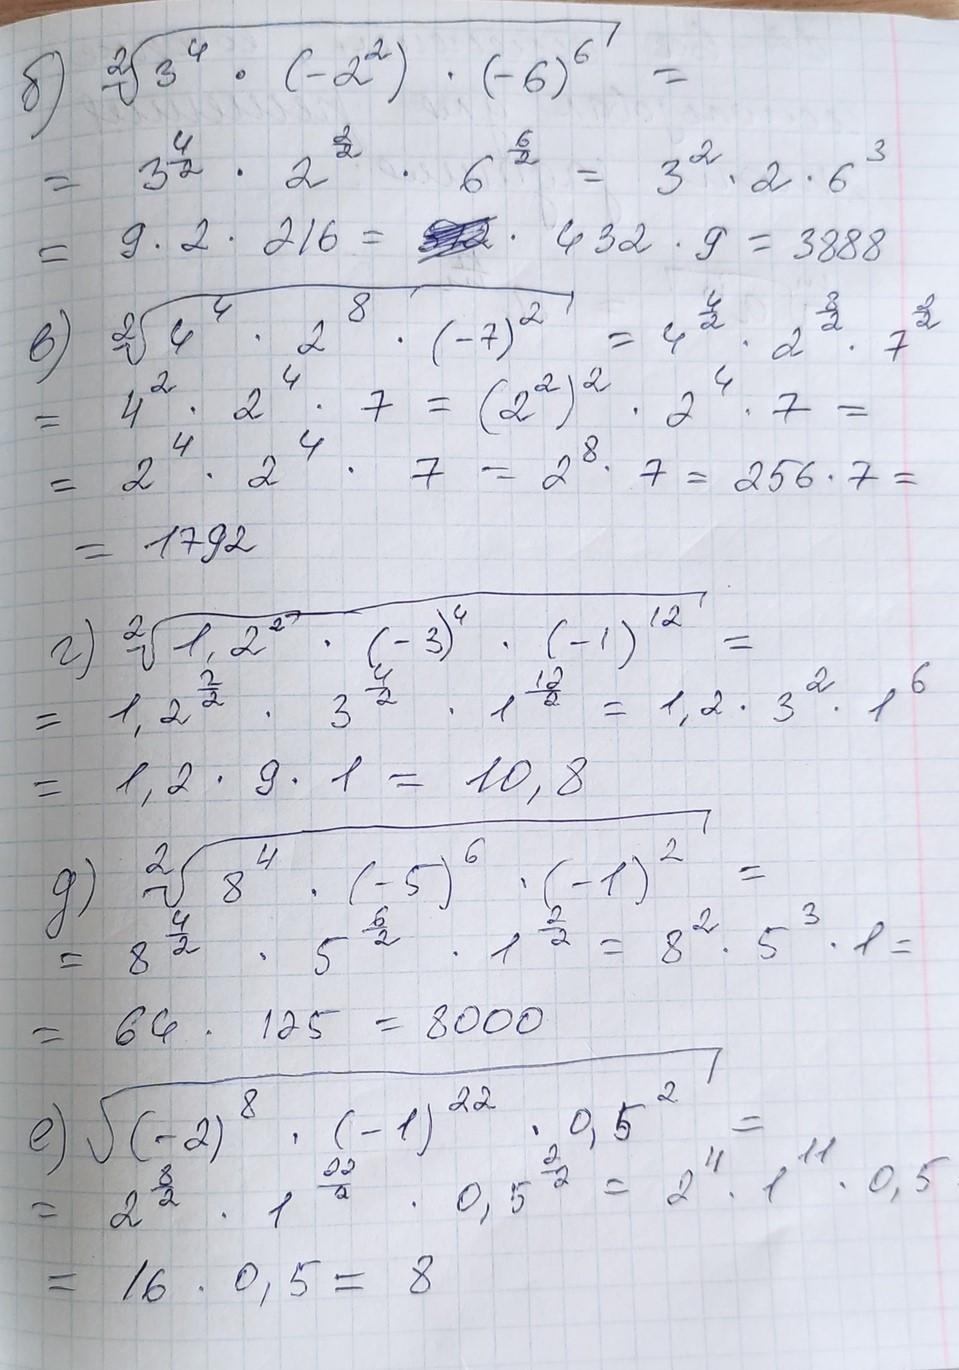 б) ²√(3⁴ · (-2²) · (-6)⁶) =
= 3^(4/2) · 2^(2/2) · 6^(6/2) = 3² · 2 · 6³
= 9 · 2 · 216 = · 432 · 9 = 3888
в) ²√(4⁴ · 2⁸ · (-7)²) = 4^(4/2) · 2^(8/2) · 7^(2/2)
= 4² · 2⁴ · 7 = (2²)² · 2⁴ · 7 =
= 2⁴ · 2⁴ · 7 = 2⁸ · 7 = 256 · 7 =
= 1792
г) ²√(1,2² · (-3)⁴ · (-1)¹²) =
= 1,2^(2/2) · 3^(4/2) · 1^(12/2) = 1,2 · 3² · 1⁶
= 1,2 · 9 · 1 = 10,8
д) ²√(8⁴ · (-5)⁶ · (-1)²) =
= 8^(4/2) · 5^(6/2) · 1^(2/2) = 8² · 5³ · 1 =
= 64 · 125 = 8000
е) √((-2)⁸ · (-1)²² · 0,5²) =
= 2^(8/2) · 1^(22/2) · 0,5^(2/2) = 2⁴ · 1¹¹ · 0,5
= 16 · 0,5 = 8